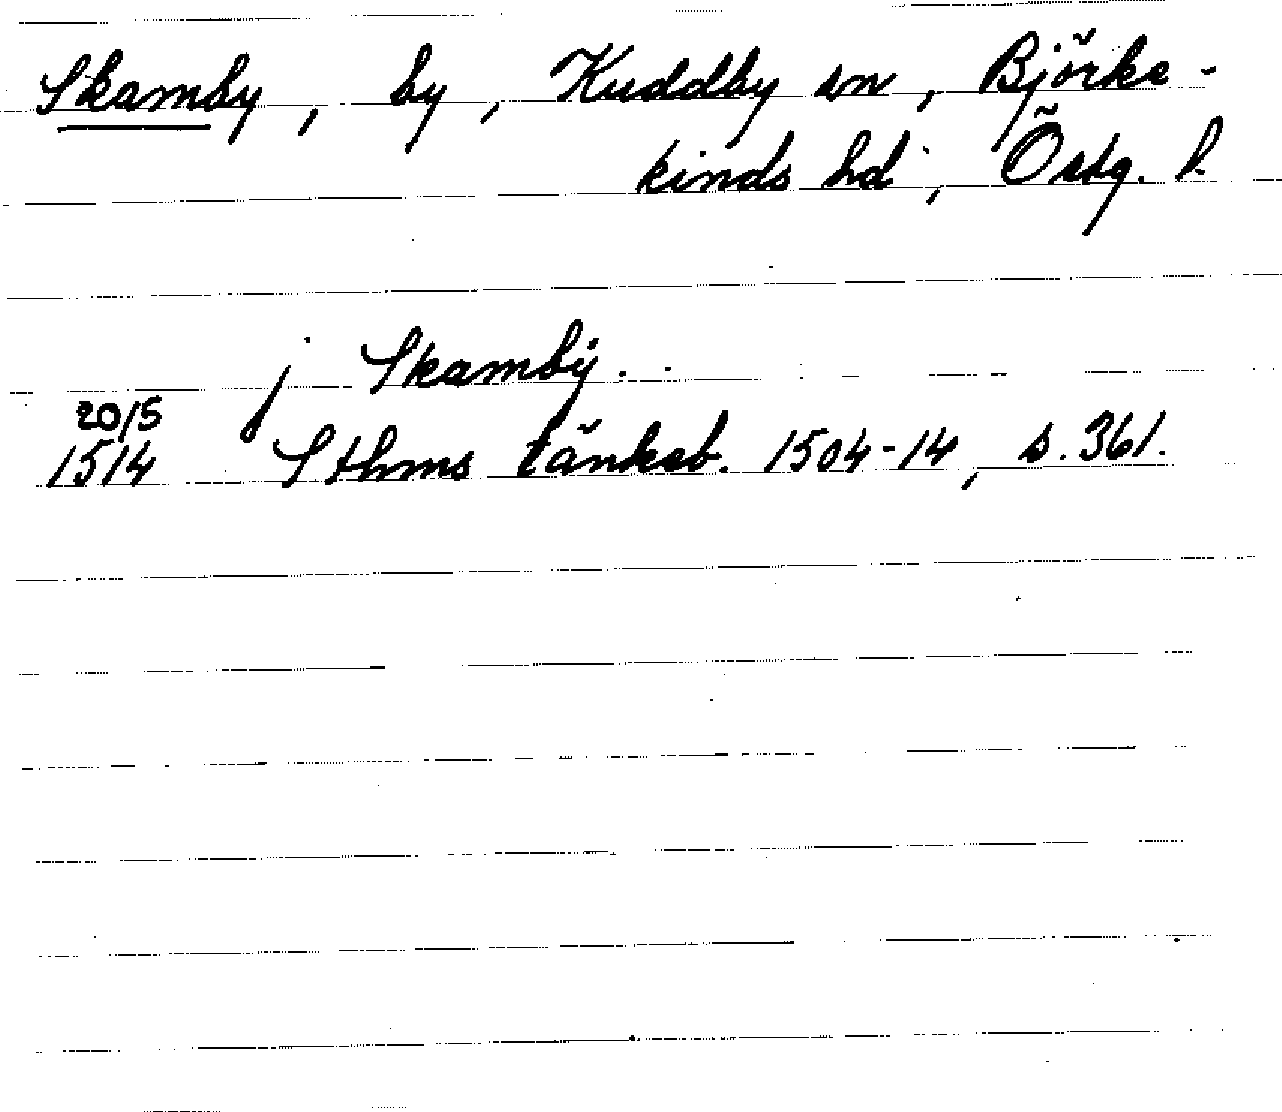 Skamby, by, Kuddby sn, Björke-
kinds hd, Östg. l.
j Skambÿ.
20/5
1514 Sthms tänkeb. 1504-14, s. 361.